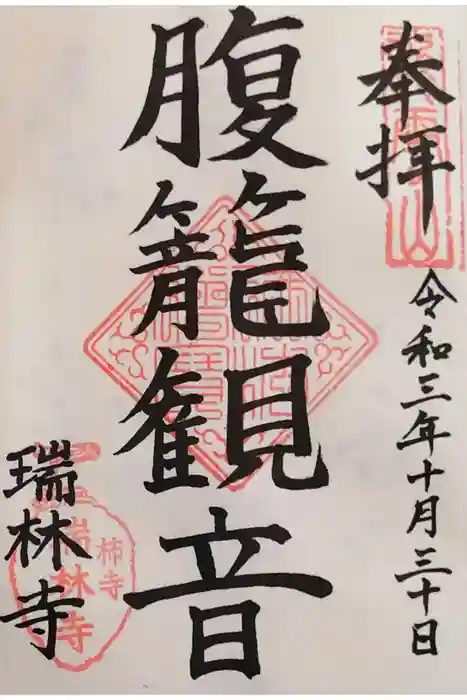 奉拝
令和三年十月三十日
腹籠観音
瑞林寺
柿寺
瑞林寺